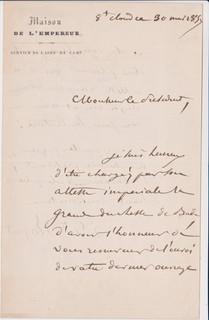 Maison
DE L'EMPEREUR.
SERVICE DE L'AIDE DE CAMP
St Cloud ce 30 mai
Monsieur le président,
je suis heureux
d'être chargé par son
altesse impériale la
grande duchesse de Bade
d'avoir l'honneur de
vous remercier de l'envoi
de votre dernier ouvrage